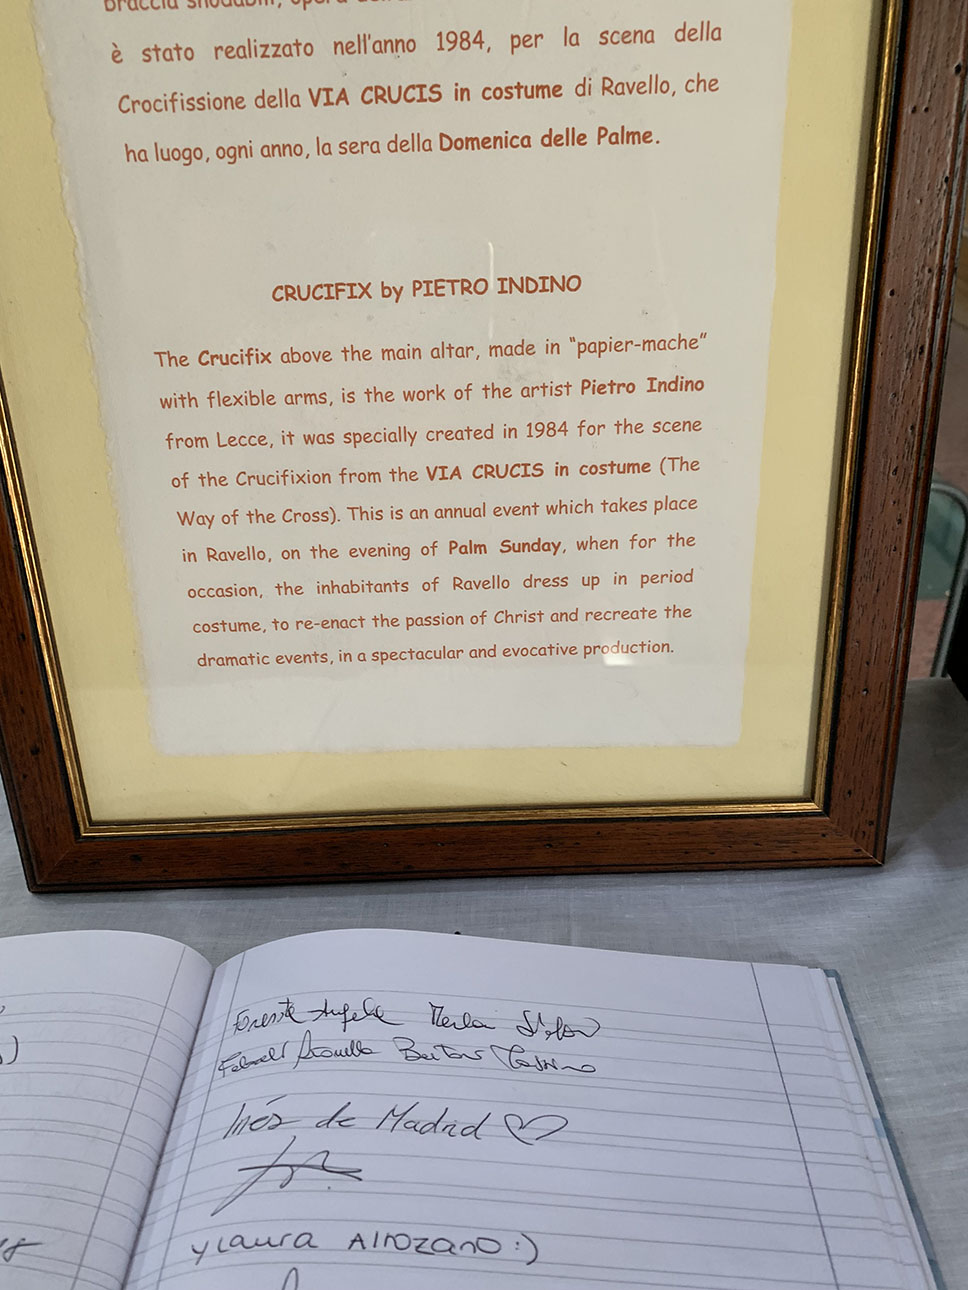 braccia snodabili,
è stato realizzato nell'anno 1984, per la scena della
Crocifissione della VIA CRUCIS in costume di Ravello, che
ha luogo, ogni anno, la sera della Domenica delle Palme.
CRUCIFIX by PIETRO INDINO
The Crucifix above the main altar, made in “papier-mache”
with flexible arms, is the work of the artist Pietro Indino
from Lecce, it was specially created in 1984 for the scene
of the Crucifixion from the VIA CRUCIS in costume (The
Way of the Cross). This is an annual event which takes place
in Ravello, on the evening of Palm Sunday, when for the
occasion, the inhabitants of Ravello dress up in period
costume, to re-enact the passion of Christ and recreate the
dramatic events, in a spectacular and evocative production.
Inés de Madrid
y Laura
:)